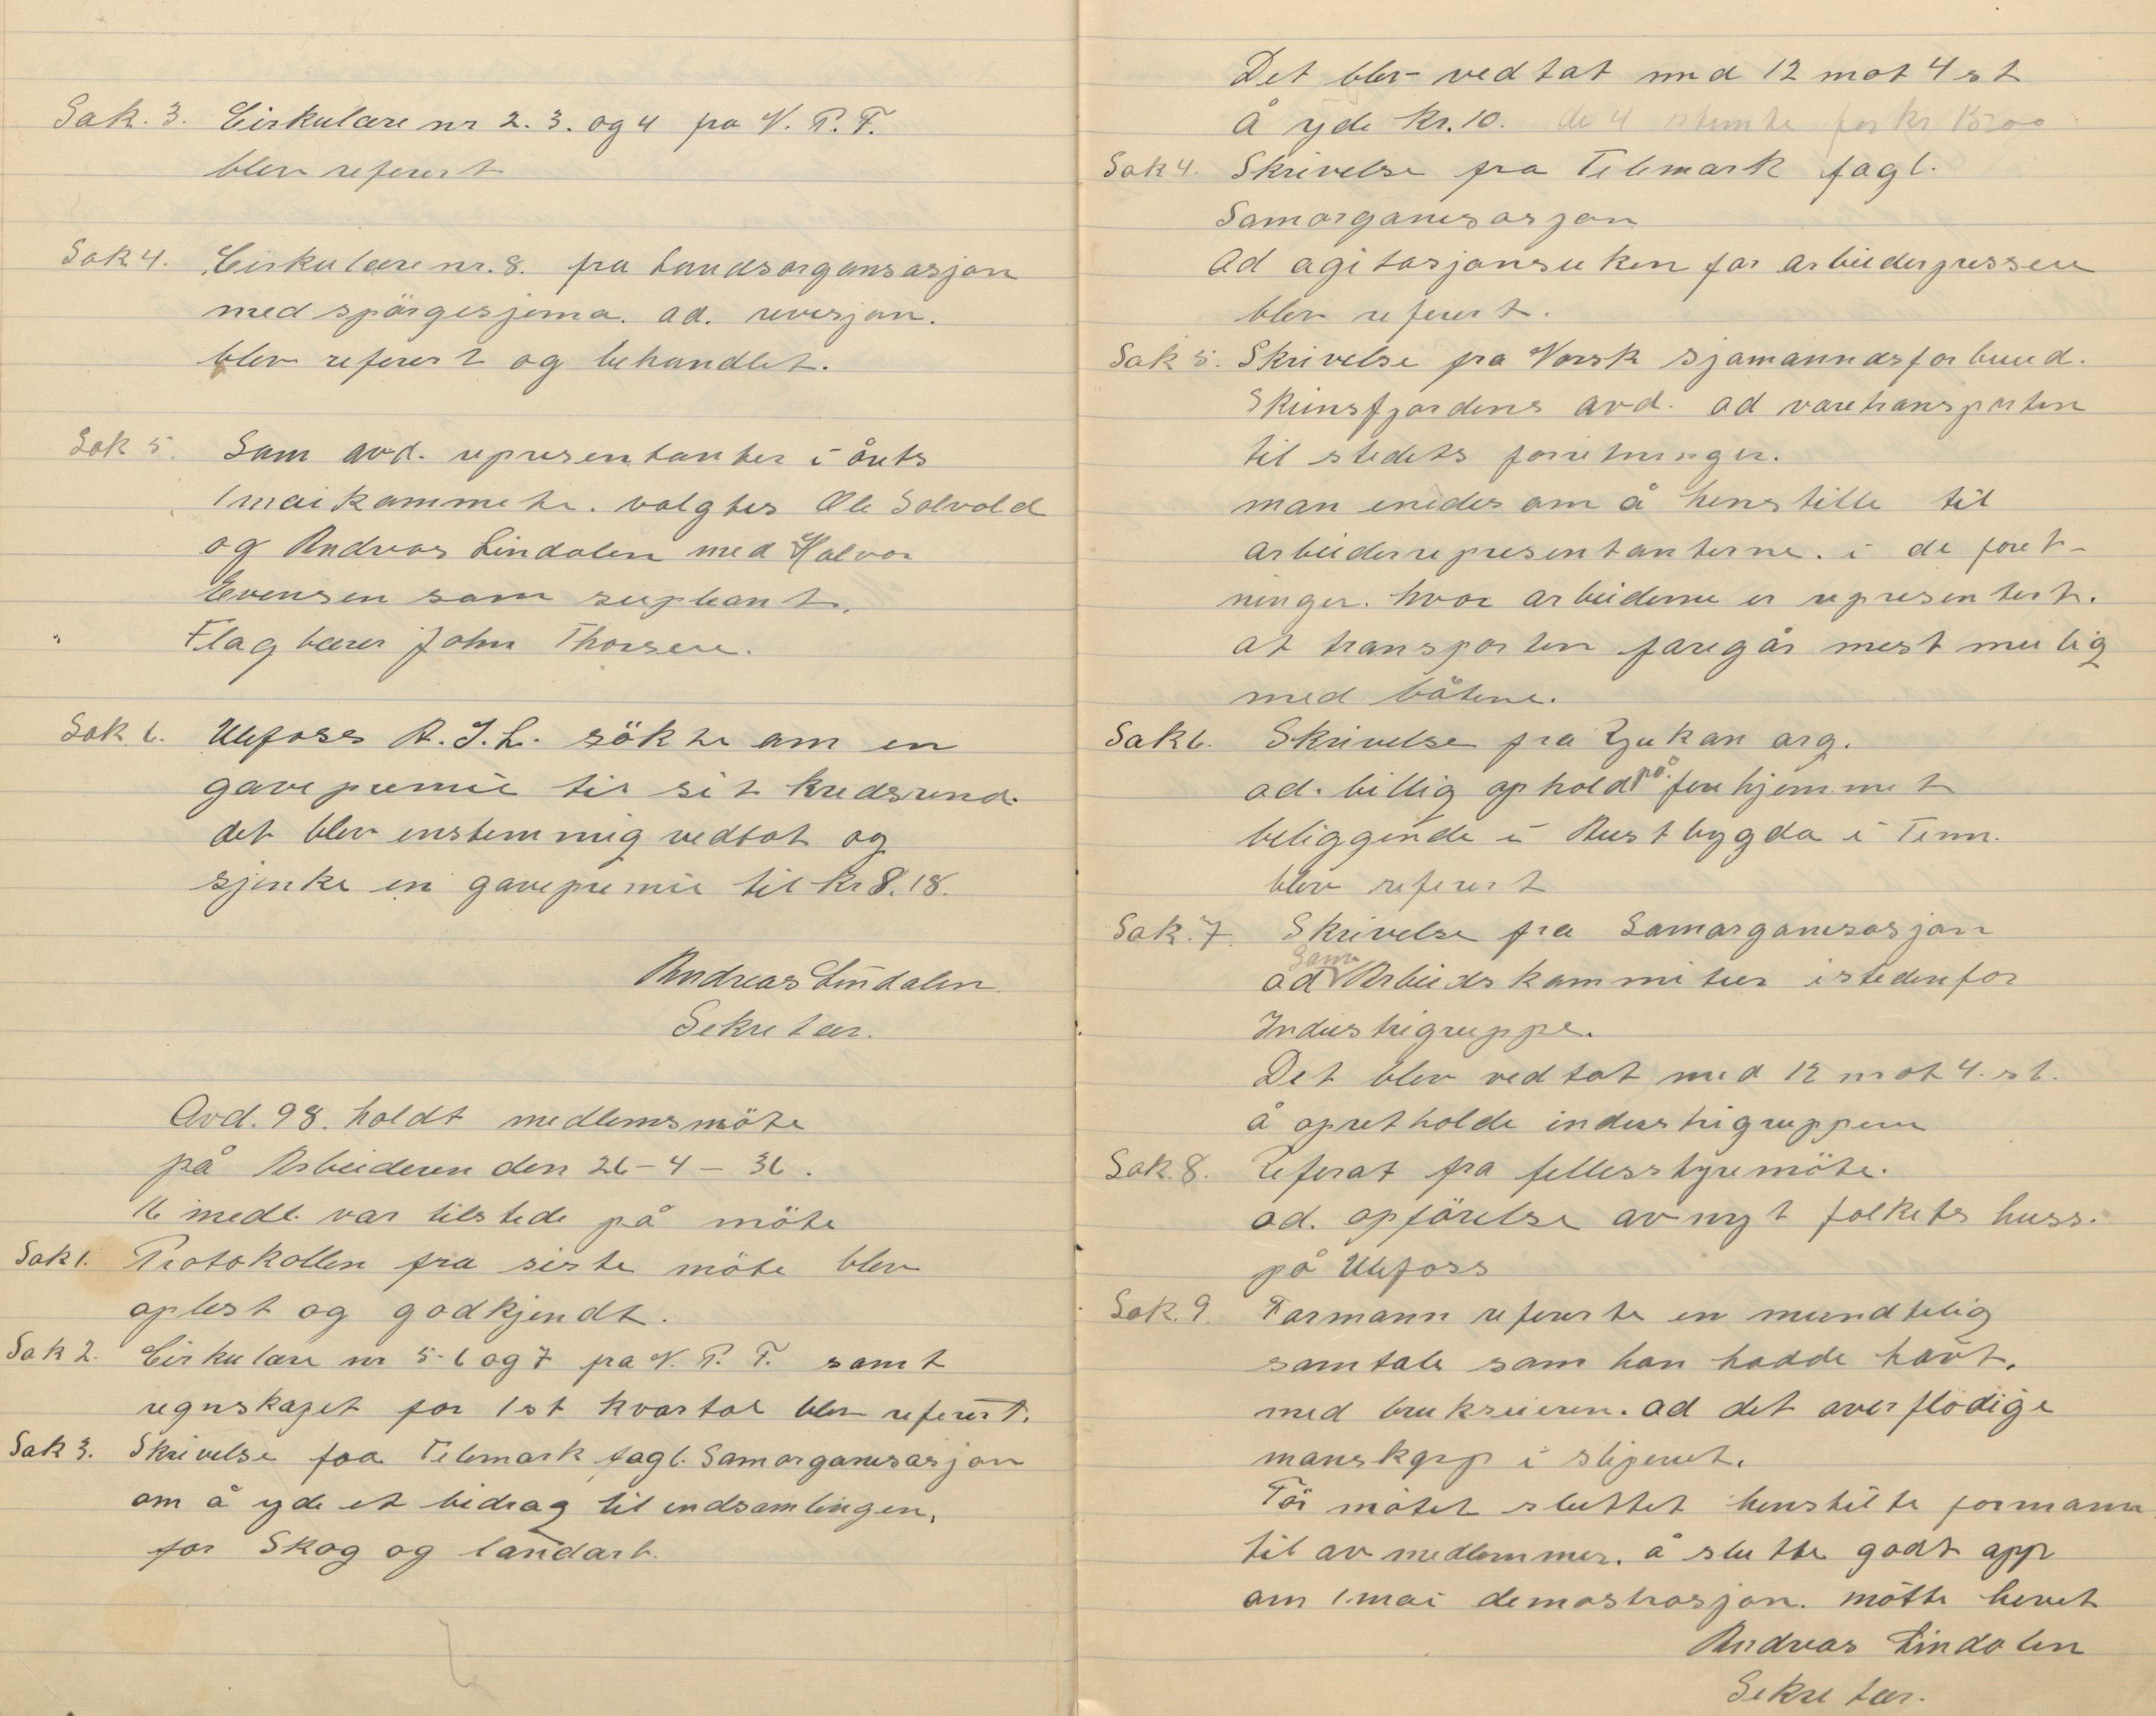 Sak. 3. Cirkulære nr 2. 3. og 4 fra N. P. F.
blev referert
Sak 4. Cirkulære nr. 8. fra Landsorgansasjon
med spörgesjema. ad. revisjon.
blev referert og behandlet.
Sak 5. Som avd. representanter i årets
1 mai kommete. valgtes Ole Solvold
og Andreas Lindalen med Halvor
Evensen som supleant.
" Flag bærer John Thorsen.
Sak 6. Ulefoss A. I. L. sökte om en
gavepremie til sit kredsrend.
det blev enstemmig vedtat og
sjenke en gavepremie til kr 8.18.
Andreas Lindalen
Sekretær.
Avd. 98. holdt medlemsmöte
på Arbeideren den 26-4-36.
16 medl. var tilstede på möte
Sak 1. Protokollen fra siste möte blev
oplest og godkjendt.
Sak 2. Cirkulære nr 5-6 og 7 fra N. P. F. samt
regnskapet for 1st kvartal blev referert.
Sak 3. Skrivelse fra Telemark fagl. Samorganisasjon
om å yde et bidrag til indsamlingen,
for Skog og landarb.
Det blev vedtat med 12 mot 4 st
å yde kr. 10. de 4 stemte for kr 1500
Sak 4. Skrivelse fra Telemark fagl.
Samorganisasjon
Ad agitasjonsuken for arbeiderpressen
blev referert.
Sak 5. Skrivelse fra Norsk sjømanndsforbund.
Skiensfjordens avd. ad varetransporten
til stedets foretninger.
man enedes om å henstille til
arbeiderrepresentanterne. i de foret-
ninger. hvor arbeiderne er representert.
at transporten foregår mest mulig
med båtene.
Sak 6. Skrivelse fra Rjukan org.
ad. billig ophold på feriehjemmet
beliggende i Austbygda i Tinn.
blev referert
Sak. 7. Skrivelse fra Samorganisasjon
ad Sam Arbeidskommiteer istedenfor
Industrigruppe.
Det blev vedtat med 12 mot 4. st.
å opretholde industrigruppen
Sak. 8. Referat fra fellesstyremöte.
ad. opförelse av nyt folkets huss.
på Ulefoss
Sak. 9. Formann refererte en mundtlig
samtale som han hadde havt.
med brukseieren. ad det overflödige
manskap i sliperiet.
För mötet sluttet henstilte formann
til av medlemmer. å slutte godt opp
om 1. mai demostrasjon. mötte hevet
Andreas Lindalen
Sekretær.